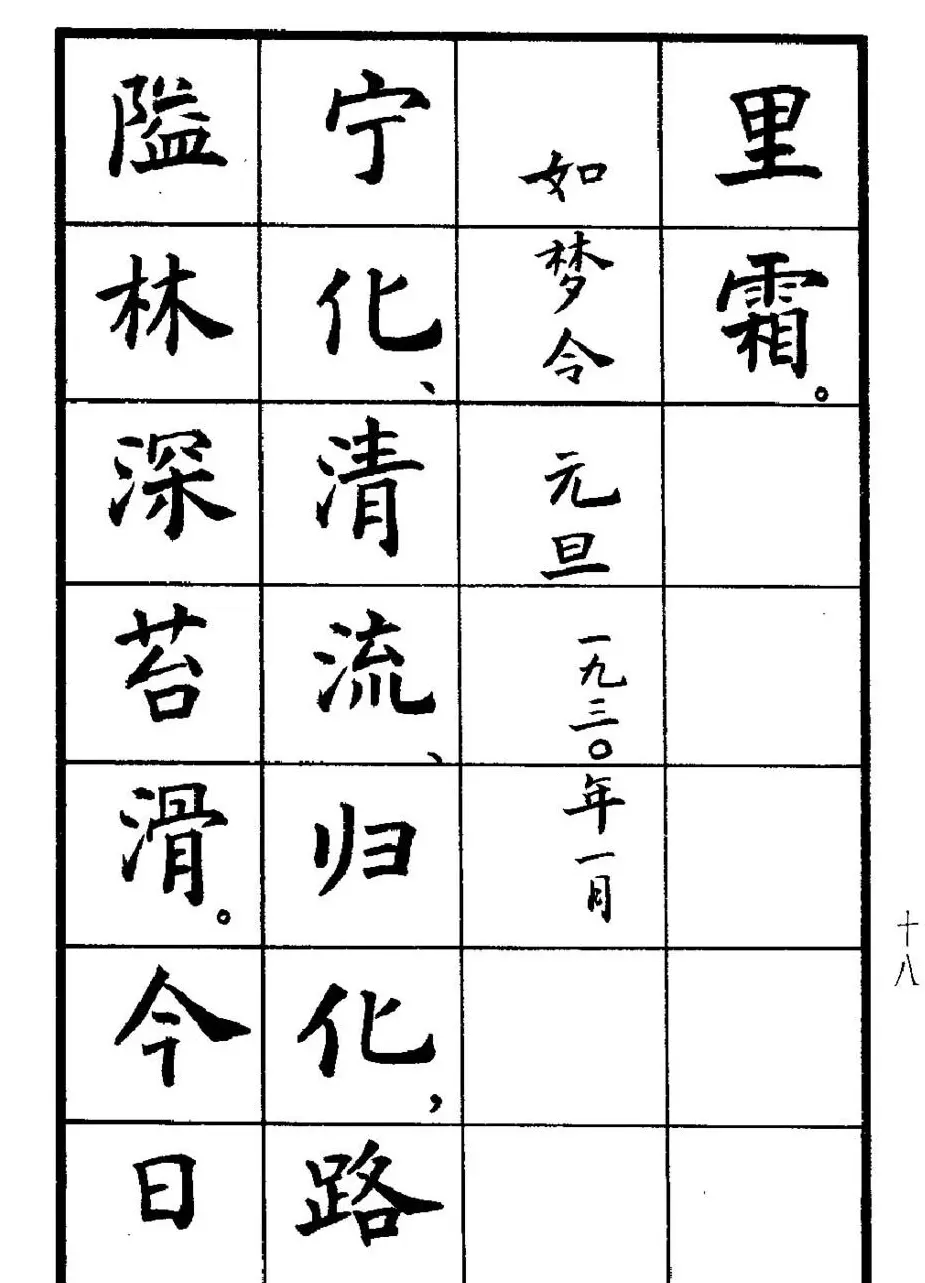 里霜。
如梦令 元旦 一九三〇年一月
宁化、清流、归化，路
隘林深苔滑。今日
十八